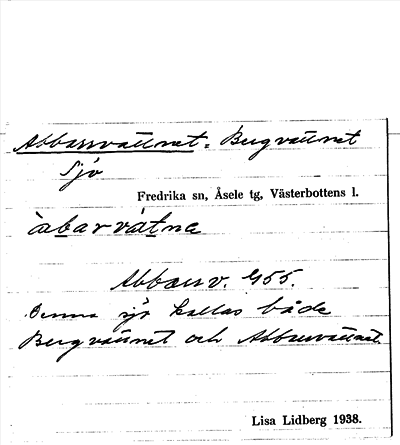 Abborrvattnet = Bergvattnet
Sjö
Fredrika sn, Åsele tg, Västerbottens l.
àbarvàtnə
Abborrv. G55.
Denna sjö kallas både
Bergvattnet och Abborrvattnet.
Lisa Lidberg 1938.